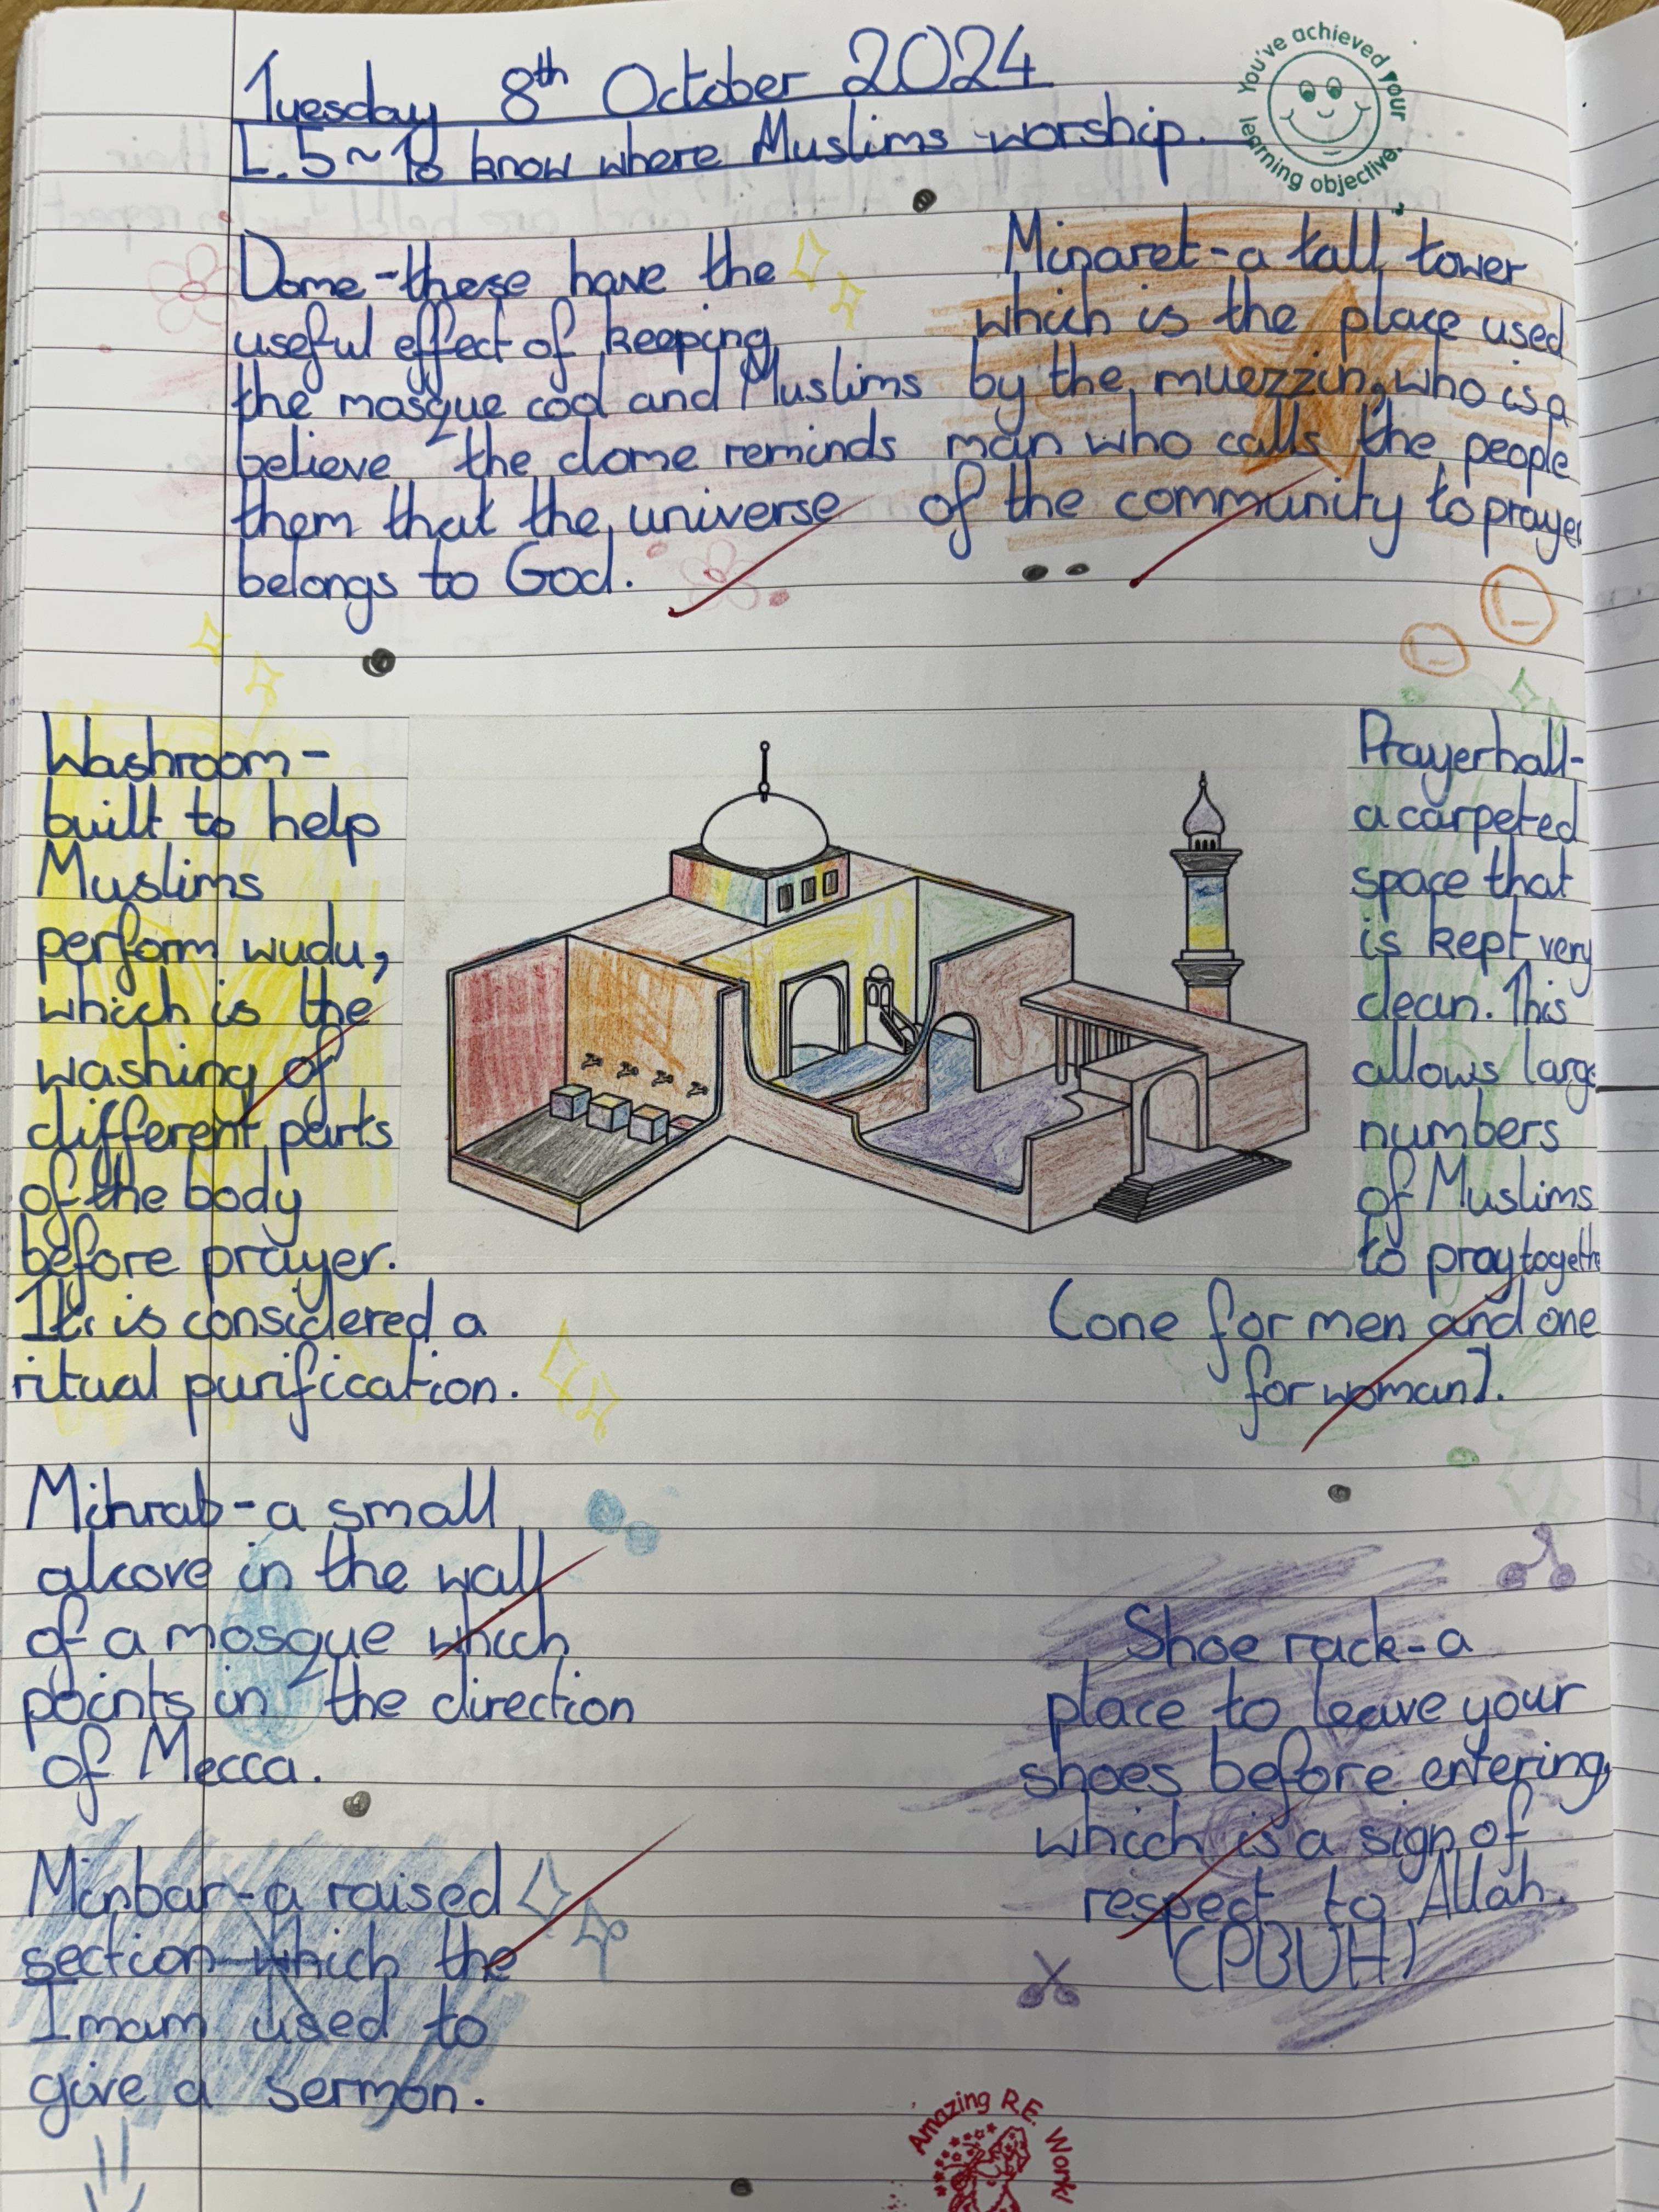 Tuesday 8th October 2024
L.5~To know where Muslims worship.
You've achieved your learning objective.
Dome-these have the
useful effect of keeping
the mosque cool and Muslims
believe the dome reminds
them that the universe
belongs to God.
Minaret-a tall tower
which is the place used
by the muezzin, who is a
man who calls the people
of the community to prayer
Washroom-
built to help
Muslims
perform wudu,
which is the
washing of
different parts
of the body
before prayer.
It is considered a
ritual purification.
Prayerhall-
a carpeted
space that
is kept very
clean. This
allows large
numbers
of Muslims
to pray together
(one for men and one
for woman).
Mihrab-a small
alcove in the wall
of a mosque which
points in the direction
of Mecca.
Shoe rack-a
place to leave your
shoes before entering,
which is a sign of
respect to Allah.
(PBUH)
Minbar-a raised
section which the
Imam used to
give a sermon.
Amazing R.E. Work!